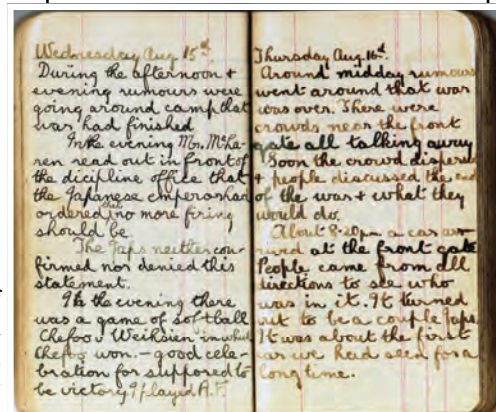 Wednesday Aug 15th
During the afternoon &
evening rumours were
going around camp that
war had finished
In the evening Mr. McLa-
ren read out in front of
the dicipline office that
the Japanese emperor had
ordered that no more firing
should be.
The Japs neither con-
firmed nor denied this
statement.
In the evening there
was a game of softball
Chefoo v Weihsien in which
Chefoo won. - good cele-
bration for supposed to
be victory. I played R.F.
Thursday Aug. 16th.
Around midday rumours
went around that war
was over. There were
crowds near the front
gate all talking away
Soon the crowd dispersed
& people discussed the end
of the war & what they
would do.
About 8.20pm a car arr-
ived at the front gate
People came from all
directions to see who
was in it. It turned
out to be a couple Japs.
It was about the first
car we had seen for a
long time.